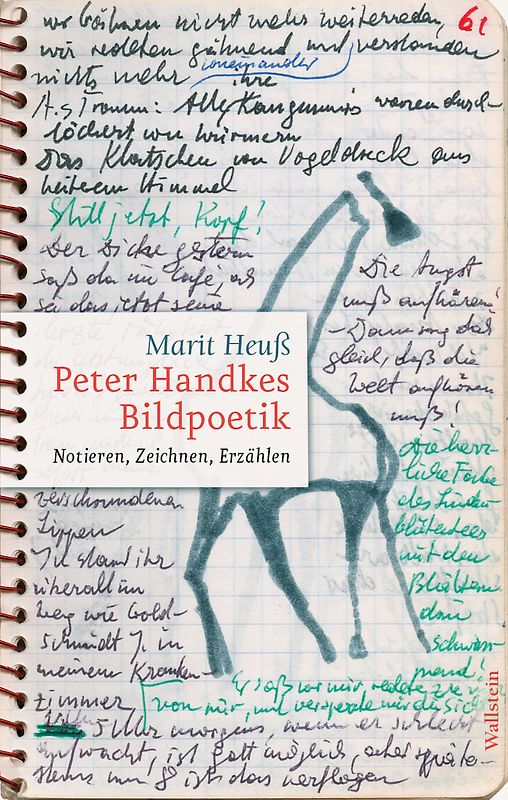 61
wir redeten gähnend und verstanden
nichts mehr voneinander
A.s Traum: Alle Kängurus waren durch-
löchert von Würmern
Das Klatschen von Vogeldreck aus
heiterem Himmel
Still jetzt, Kopf!
Der Dicke gestern
saß da im Café, als
sei das jetzt seine
Die Angst
muß aufhören!
– Dann sag das
gleich, daß die
Welt aufhören
muß!
Marit Heuß
Peter Handkes
Bildpoetik
Notieren, Zeichnen, Erzählen
Die herr-
liche Farbe
des Linden-
blütentees
mit den
Blüten
drin
schwim-
mend!
verschwundenen
Lippen
Ich stand ihr
überall im
Weg wie Gold-
schmidt J. in
meinem Kranken-
zimmer
Er saß vor mir, redete
von mir, und versperrte mir die Sicht
5 Uhr morgens, wenn er schlecht
aufwacht, ist Gott möglich, aber späte-
stens um 8 ist das verflogen
Wallstein